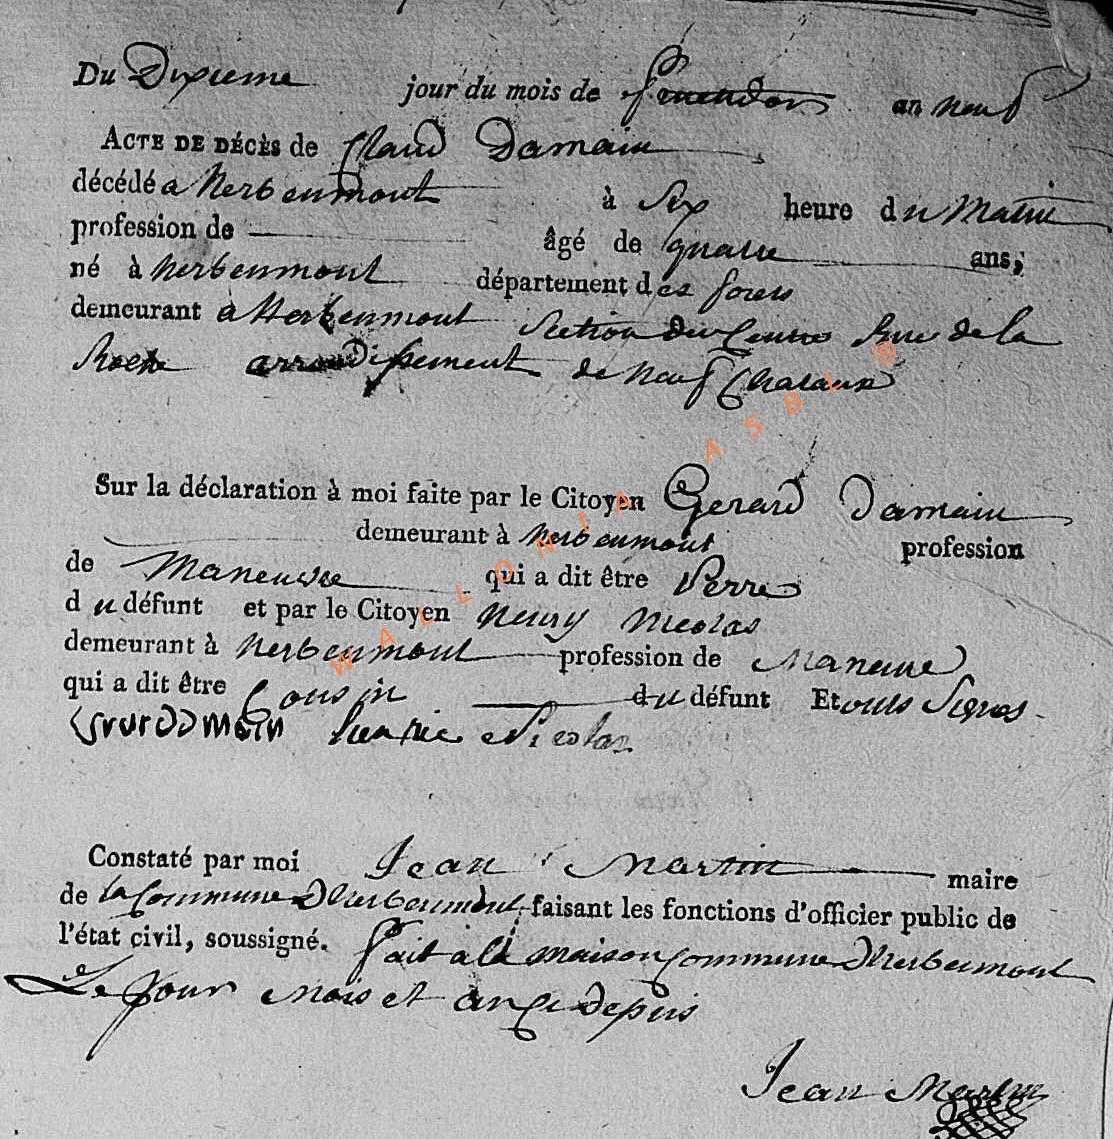 Du Dixieme jour du mois de an neuf
ACTE DE DÉCÈS de Claud Damain
décédé a herbeumont à Six heure du Matin
profession de âgé de quatre ans,
né à herbeumont département des forets
demeurant a Herbeumont Section du Centre Rue de la
Roche arrondissement de neuf Chataux
Sur la déclaration à moi faite par le Citoyen Gerard Damain
demeurant à herbeumont profession
de Maneuvre qui a dit être Perre
du défunt et par le Citoyen henry Nicolas
demeurant à herbeumont profession de Maneuvre
qui a dit être Cousin du défunt Et ons Signes
henrie Nicolas
Constaté par moi Jean Martin maire
de la Commune d'herbeumont faisant les fonctions d'officier public de
l'état civil, soussigné. fait a la maison Commune d'herbeumont
Le Jour Mois et an ci depuis
Jean Martin
WALLONIA ASBL ®